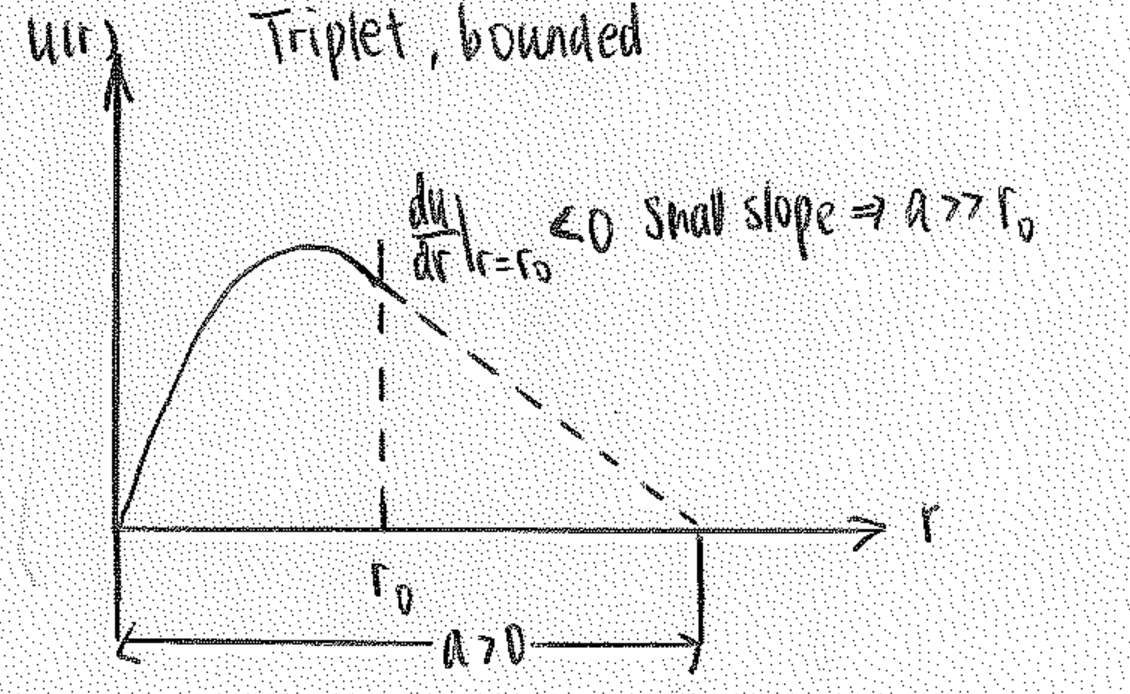 u(r) Triplet, bounded
du/dr|r=r₀ <0 Small slope ⇒ a>>r₀
r
r₀
a>0